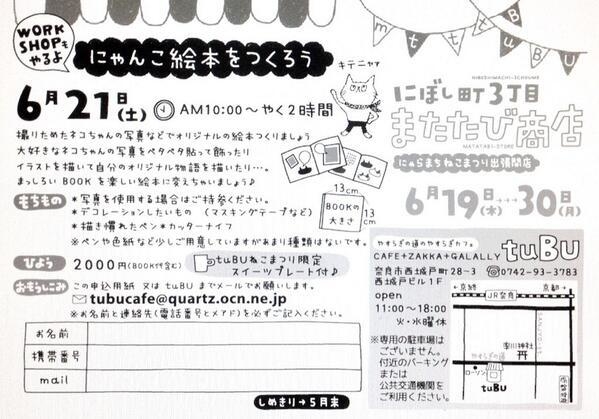 WORK
SHOPも
やるよ
にゃんこ絵本をつくろう
6月21日(土) AM10:00〜やく2時間
キテニャ
撮りためたネコちゃんの写真などでオリジナルの絵本つくりましょう
大好きなネコちゃんの写真をペタペタ貼って飾ったり
イラストを描いて自分のオリジナル物語を描いたり…。
まっしろい BOOK を楽しい絵本に変えちゃいましょう♪
もちもの
*写真を使用する場合はご持参ください。
*デコレーションしたいもの (マスキングテープなど)
*描き慣れたペン *カッターナイフ
※ペンや色紙など少しご用意していますがあまり種類はないです。
13cm
BOOKの
大きさ
13cm
ひよう 2000円(BOOK代含む)
tuBUねこまつり限定
スイーツプレート付♪
おもうしこみ この申込用紙 又は tuBU までメールでお願いします.
tubucafe@quartz.ocn.ne.jp
※お名前と連絡先(電話番号とメアド)を必ずご記入ください.
お名前
携帯番号
mail
しめきり→5月末
mttxBU
tuBU
NIBOSHIMACHI-3CHOUME
にぼし町3丁目
またたび商店
MATATABI-STORE
にゃらまちねこまつり出張開店
6月19日(木)→30日(月)
やすらぎの道のやすらぎカフェ
CAFE+ZAKKA+GALALLY tuBU
奈良市西城戸町28-3 0742-93-3783
西城戸ビル1F
open
11:00〜18:00
火・水曜休
※専用の駐車場は
ございません。
付近のパーキング
または
公共交通機関を
ご利用ください。
←京終 京都→
JR奈良
SANJYO-ST
率川神社
やすらぎの道
ローソン
tuBU